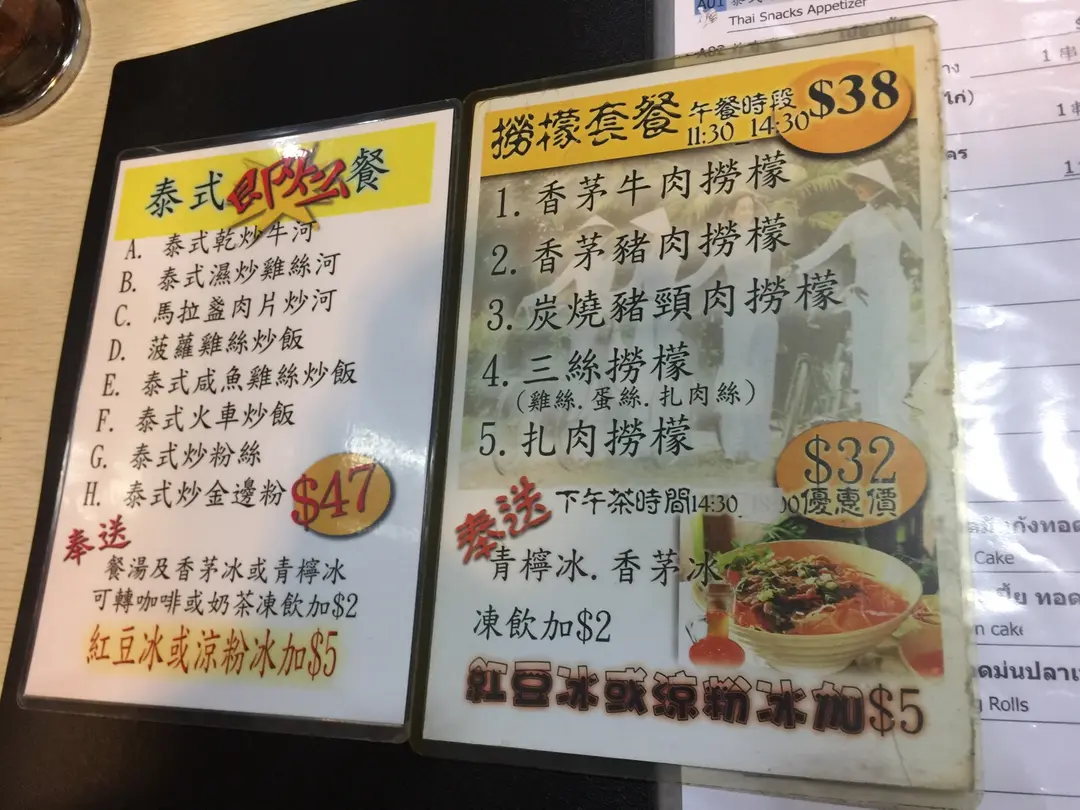 泰式即炒餐
A. 泰式乾炒牛河
B. 泰式濕炒雞絲河
C. 馬拉盞肉片炒河
D. 菠蘿雞絲炒飯
E. 泰式咸魚雞絲炒飯
F. 泰式火車炒飯
G. 泰式炒粉絲
H. 泰式炒金邊粉
$47
奉送
餐湯及香茅冰或青檸冰
可轉咖啡或奶茶凍飲加$2
紅豆冰或涼粉冰加$5
撈檬套餐 午餐時段 $38
11:30_14:30
1. 香茅牛肉撈檬
2. 香茅豬肉撈檬
3. 炭燒豬頸肉撈檬
4. 三絲撈檬
(雞絲.蛋絲.扎肉絲)
5. 扎肉撈檬
$32
奉送 下午茶時間14:30 00優惠價
青檸冰.香茅冰
凍飲加$2
紅豆冰或涼粉冰加$5
A01
Thai Snacks Appetizer
A02
1 串
ไก่)
Cake
ทอด
n cake
ทอดมันปลา
Rolls